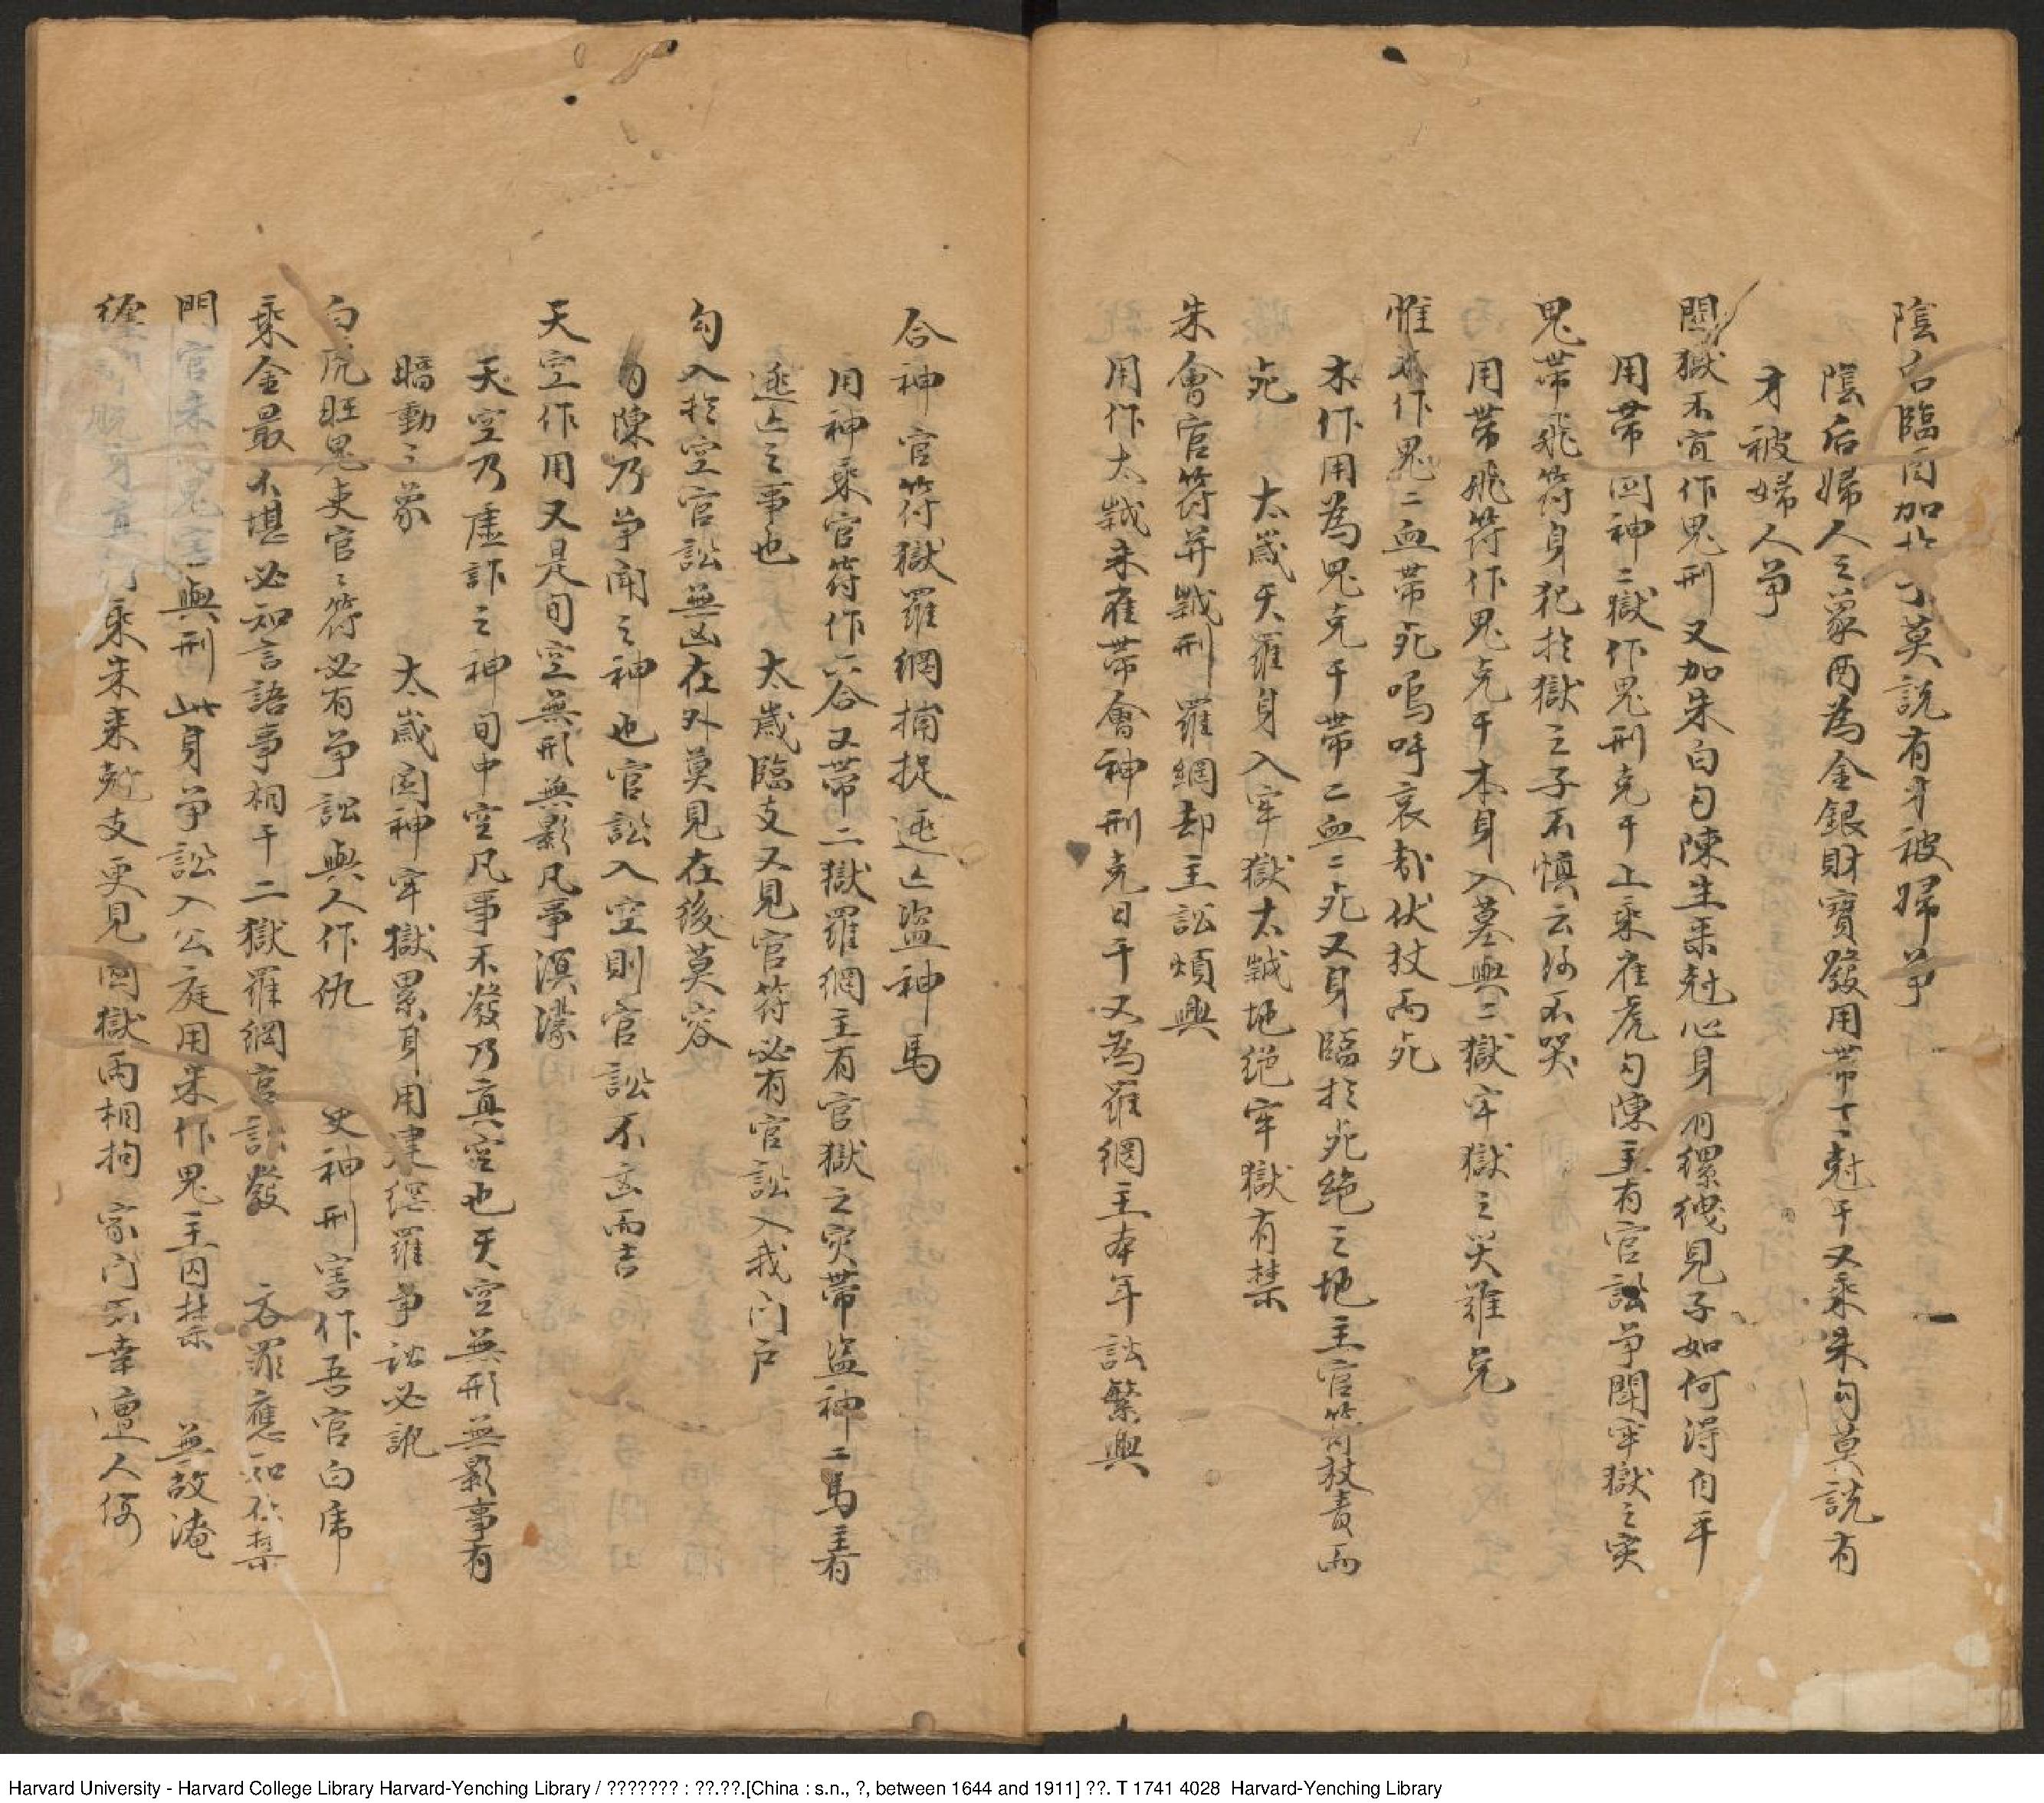 陰后臨自加於丁莫說有才被婦爭
陰后婦人之象酉為金銀財寶發用帶丁尅干又乘朱勾莫說有
才被婦人爭
関獄不宜作鬼刑又加朱白勾陳生乘尅心身有縲絏見子如何得自平
用帶囚神二獄作鬼刑克干上乘雀虎勾陳主有官訟爭鬪牢獄之災
鬼帶飛符身犯於獄之子不慎云胡不哭
用帶飛符作鬼克干本身入墓與二獄牢獄之災难免
惟木作鬼二血帶死嗚呼哀哉伏杖而死
木作用為鬼克干帶二血二死又身臨於死絕之地主官符杖責而
死　太歲天羅身入牢獄太歲地絕牢獄有禁
朱會官符并歲刑羅網却主訟煩興
用作太歲朱雀帶會神刑克日干又為羅網主本年訟繁興
合神官符獄羅網捕捉逃亡盜神馬
用神乘官符作六合又帶二獄羅網主有官獄之災帶盜神二馬主有
逃亡之事也　太歲臨支又見官符必有官訟入我门户
勾入於空官訟無凶在外莫見在後莫容
勾陳乃爭鬧之神也官訟入空則官訟不凶而吉
天空作用又是旬空無形無影凡事溟濛
天空乃虛詐之神旬中空凡事不發乃真空也天空無形無影事有
暗動之象　太歲囚神牢獄累身用建網羅爭訟必訊
白虎旺鬼吏官官符必有爭訟與人作仇　史神刑害作吾官白虎
乘金最不堪必知言語事相干二獄羅網官訟發　吞罪應知依禁
門官朱為鬼害與刑此身爭訟入公庭用朱作鬼主囚禁　無故淹
脫身直行乘朱来尅支更見囚獄两相拘家门不幸遭人